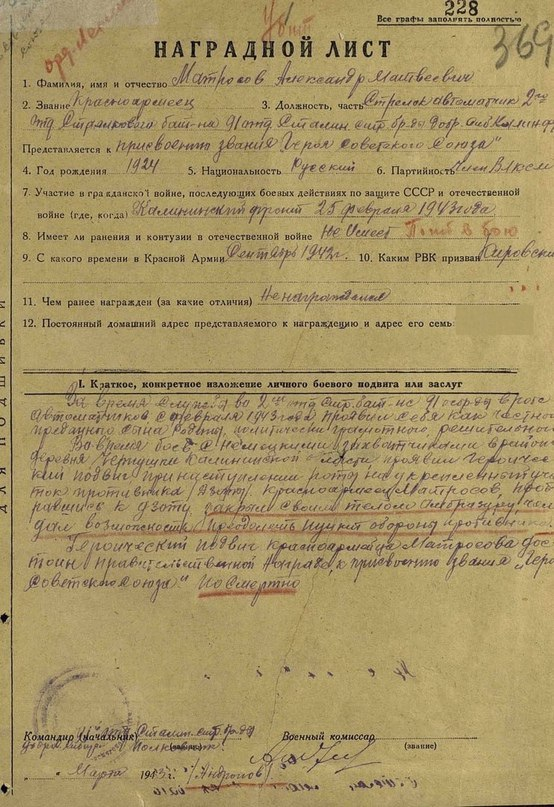 228
Все графы заполнять полностью
Убит
369
орд. Ленина
НАГРАДНОЙ ЛИСТ
1. Фамилия, имя и отчество Матросов Александр Матвеевич
2. Звание Красноармеец 3. Должность, часть Стрелок автоматчик 2го
отд. Стрелкового бат-на 91 отд. Сталин. стр. бр-ды добр.
Представляется к присвоению звания "Героя Советского Союза"
4. Год рождения 1924 5. Национальность Русский 6. Партийность член ВЛКСМ
7. Участие в гражданской войне, последующих боевых действиях по защите СССР и отечественной
войне (где, когда) Калининский фронт 25 февраля 1943 года
8. Имеет ли ранения и контузии в отечественной войне не имеет Погиб в бою
9. С какого времени в Красной Армии Сентябрь 1942 г. 10. Каким РВК призван Кировским
11. Чем ранее награжден (за какие отличия) не награждался
12. Постоянный домашний адрес представляемого к награждению и адрес его семь
I. Краткое, конкретное изложение личного боевого подвига или заслуг
За время службы во 2 отд стр. бат-не 91 бригады в роте
автоматчиков с февраля 1943 года проявил себя как честного
преданного сына родины, политически грамотного, решительного
Во время боев с немецкими захватчиками в районе
деревня Чернушки Калининской области проявил героичес
кий подвиг при наступлении роты на укрепленный
ток противника (дзот), красноармеец Матросов,
равшись к дзоту закрыл своим телом амбразуру, чем
дал возможность преодолеть пункт обороны противника
Героический подвиг красноармейца Матросова дос
тоин правительственной награды, к присвоению звания "Герой
Советского Союза" посмертно
Командир (начальник) Сталин. стр. бр-ды
Полковник
Военный комиссар
(звание)
Марта 1943 г. (Андронов)
ДЛЯ ПОДШИВКИ